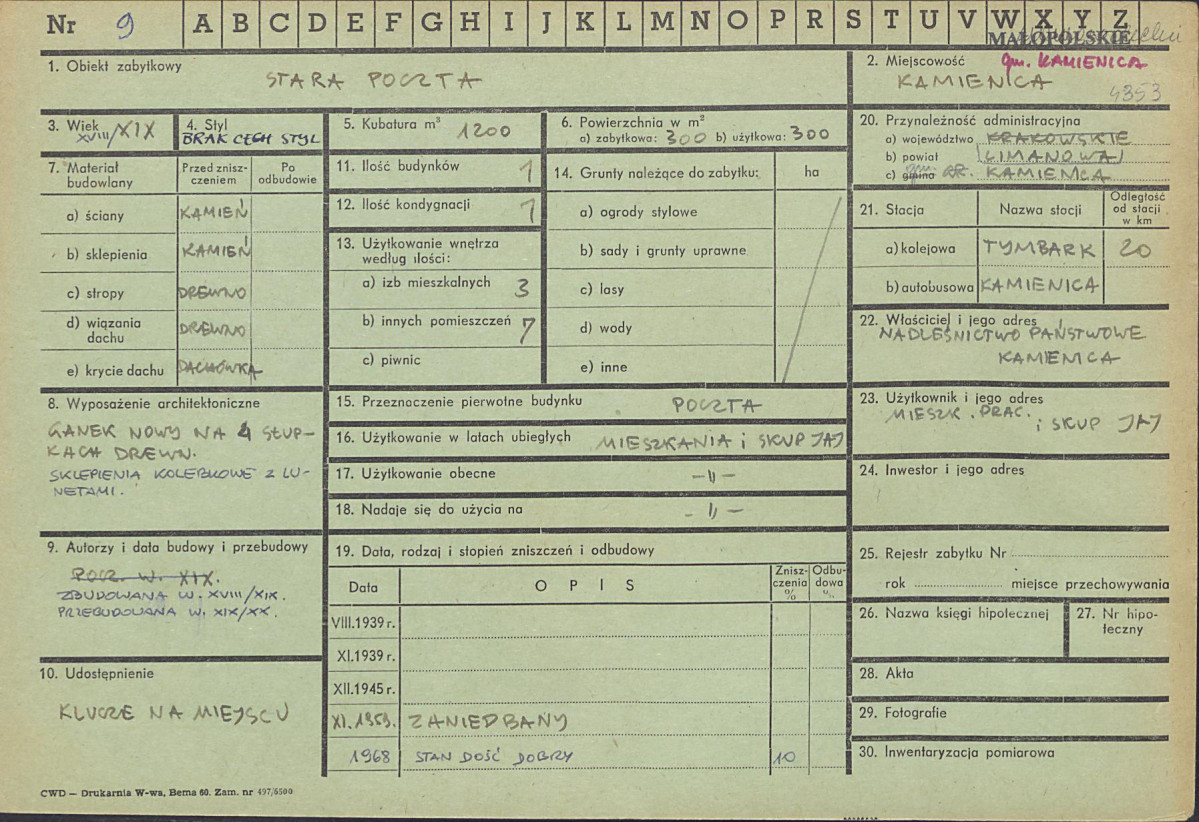 Nr 9 A B C D E F G H I J K L M N O P R S T U V W X Y Z
MAŁOPOLSKIE
1. Obiekt zabytkowy
STARA POCZTA
2. Miejscowość gm. KAMIENICA
KAMIENICA
4353
3. Wiek
XVIII/XIX
4. Styl
BRAK CECH STYL
5. Kubatura m³ 1200
6. Powierzchnia w m²
a) zabytkowa: 300 b) użytkowa: 300
7. Materiał budowlany
Przed zniszczeniem
Po odbudowie
a) ściany KAMIEŃ
b) sklepienia KAMIEŃ
c) stropy DREWNO
d) wiązania dachu DREWNO
e) krycie dachu DACHÓWKA
8. Wyposażenie architektoniczne
GANEK NOWY NA 4 SŁUP-
KACH DREWN.
SKLEPIENIA KOLEBKOWE Z LU-
NETAMI.
9. Autorzy i data budowy i przebudowy
POCZ. W. XIX.
ZBUDOWANA W. XVIII/XIX.
PRZEBUDOWANA W. XIX/XX.
10. Udostępnienie
KLUCZE NA MIEJSCU
11. Ilość budynków 1
12. Ilość kondygnacji 1
13. Użytkowanie wnętrza
według ilości:
a) izb mieszkalnych 3
b) innych pomieszczeń 7
c) piwnic
14. Grunty należące do zabytku: ha
a) ogrody stylowe
b) sady i grunty uprawne
c) lasy
d) wody
e) inne
15. Przeznaczenie pierwotne budynku POCZTA
16. Użytkowanie w latach ubiegłych MIESZKANIA i SKUP JAJ
17. Użytkowanie obecne -„-
18. Nadaje się do użycia na -„-
19. Data, rodzaj i stopień zniszczeń i odbudowy
Data OPIS Zniszczenia % Odbudowa %
VIII.1939 r.
XI.1939 r.
XII.1945 r.
XI.1959. ZANIEDBANY
1968 STAN DOŚĆ DOBRY 10
20. Przynależność administracyjna
a) województwo KRAKOWSKIE
b) powiat LIMANOWA
c) gmina gm. KAMIENICA
21. Stacja
Nazwa stacji
Odległość od stacji w km
a) kolejowa TYMBARK 20
b) autobusowa KAMIENICA
22. Właściciel i jego adres
NADLEŚNICTWO PAŃSTWOWE
KAMIENICA
23. Użytkownik i jego adres
MIESZK. PRAC.
i SKUP JAJ
24. Inwestor i jego adres
25. Rejestr zabytku Nr
rok miejsce przechowywania
26. Nazwa księgi hipotecznej
27. Nr hipoteczny
28. Akta
29. Fotografie
30. Inwentaryzacja pomiarowa
CWD — Drukarnia W-wa, Bema 60. Zam. nr 497/6500